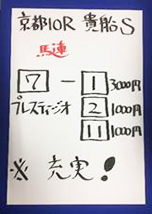 京都10R 貴船S
馬連
7 － 1 3000円
プレスティージオ 2 1000円
11 1000円
※ 充実！